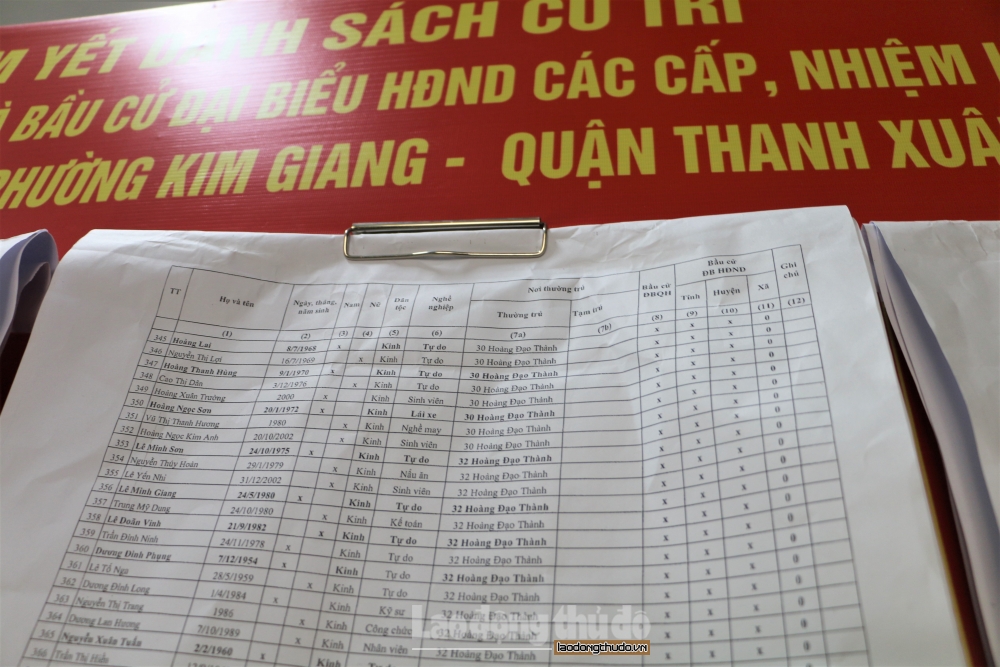 YẾT DANH SÁCH CỬ TRI
BẦU CỬ ĐẠI BIỂU HĐND CÁC CẤP, NHIỆM
PHƯỜNG KIM GIANG - QUẬN THANH XUÂN
TT Họ và tên Ngày, tháng, năm sinh Nam Nữ Dân tộc Nghề nghiệp Nơi thường trú Bầu cử ĐBQH Bầu cử ĐB HĐND Ghi chú
Thường trú Tạm trú Tỉnh Huyện Xã
(1) (2) (3) (4) (5) (6) (7a) (7b) (8) (9) (10) (11) (12)
345 Hoàng Lai 8/7/1968 x Kinh Tự do 30 Hoàng Đạo Thành x x x 0
346 Nguyễn Thị Lợi 16/7/1969 x Kinh Tự do 30 Hoàng Đạo Thành x x x 0
347 Hoàng Thanh Hùng 9/1/1970 x Kinh Tự do 30 Hoàng Đạo Thành x x x 0
348 Cao Thị Dân 3/12/1976 x Kinh Tự do 30 Hoàng Đạo Thành x x x 0
349 Hoàng Xuân Trường 2000 x Kinh Sinh viên 30 Hoàng Đạo Thành x x x 0
350 Hoàng Ngọc Sơn 20/1/1972 x Kinh Lái xe 30 Hoàng Đạo Thành x x x 0
351 Vũ Thị Thanh Hương 1980 x Kinh Nghề may 30 Hoàng Đạo Thành x x x 0
352 Hoàng Ngọc Kim Anh 20/10/2002 x Kinh Sinh viên 30 Hoàng Đạo Thành x x x 0
353 Lê Minh Sơn 24/10/1975 x Kinh Tự do 32 Hoàng Đạo Thành x x x 0
354 Nguyễn Thúy Hoàn 29/1/1979 x Kinh Nấu ăn 32 Hoàng Đạo Thành x x x 0
355 Lê Yến Nhi 31/12/2002 x Kinh Sinh viên 32 Hoàng Đạo Thành x x x 0
356 Lê Minh Giang 24/5/1980 x Kinh Tự do 32 Hoàng Đạo Thành x x x 0
357 Trung Mỹ Dung 24/10/1980 x Kinh Kế toán 32 Hoàng Đạo Thành x x x 0
358 Lê Doãn Vinh 21/9/1982 x Kinh Tự do 32 Hoàng Đạo Thành x x x 0
359 Trần Đình Ninh 24/11/1978 x Kinh Tự do 32 Hoàng Đạo Thành x x x 0
360 Dương Đình Phụng 7/12/1954 x Kinh Tự do 32 Hoàng Đạo Thành x x x 0
361 Lê Tố Nga 28/5/1959 x Kinh Tự do 32 Hoàng Đạo Thành x x x 0
362 Dương Đình Long 1/4/1984 x Kinh Kỹ sư 32 Hoàng Đạo Thành x x x 0
363 Nguyễn Thị Trang 1986 x Kinh Công chức 32 Hoàng Đạo Thành x x x 0
364 Dương Lan Hương 7/10/1989 x Kinh Nhân viên x x x 0
365 Nguyễn Xuân Tuấn 2/2/1960 x Kinh
366 Trần Thị Hiền
Laodongthudo
laodongthudo.vn